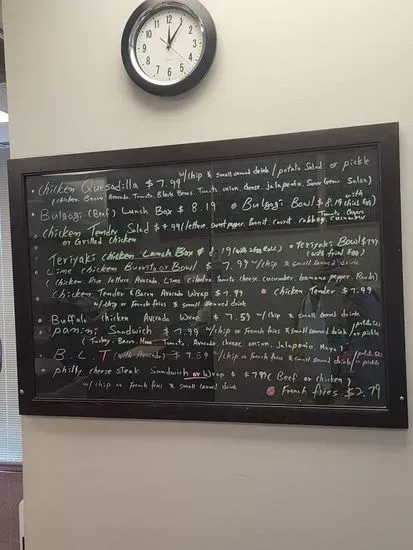 12 1 2 3 4 5 6 7 8 9 10 11
w/chip & small canned drink / potato Salad or pickle
• Chicken Quesadilla $7.99
(chicken, Bacon, Avocado, Tomato, Black Beans, Tomato, onion, cheese, Jalapeño, Sour Cream Salsa)
• Bulgogi (Beef) Lunch Box $8.19 • Bulgogi Bowl $8.19 (with fried Egg)
• Chicken Tender Salad $7.99 (lettuce, sweet pepper, carrot, cabbage, cucumber, Tomato, Onion
or Grilled chicken
Teriyaki chicken Lunch Box $8.19 (with egg Roll) • Teriyaki Bowl $7.99 (with fried Egg)
• Lime chicken Burrito or Bowl $7.99 w/chip & small canned drink
(chicken, Rice, lettuce, Avocado, Lime, cilantro, Tomato, cheese, cucumber, banana pepper, Ranch)
• Chicken Tender & Bacon Avocado Wrap $7.99 • chicken Tender $7.99
w/chip or French fries & small canned drink
• Buffalo chicken Avocado Wrap $7.59 w/chip & small canned drink
• panini Sandwich $7.99 w/chip or French fries & small canned drink / potato Sal or pickle
(Turkey, Bacon, Ham, Tomato, Avocado, cheese, onion, Jalapeño, Mayo)
• B.L.T (with Avocado) $7.59 w/chip or French fries & small canned drink / potato Sal or pickle
• philly cheese steak Sandwich or Wrap $7.99 (Beef or chicken)
w/chip or French fries & small canned drink
French fries $2.79